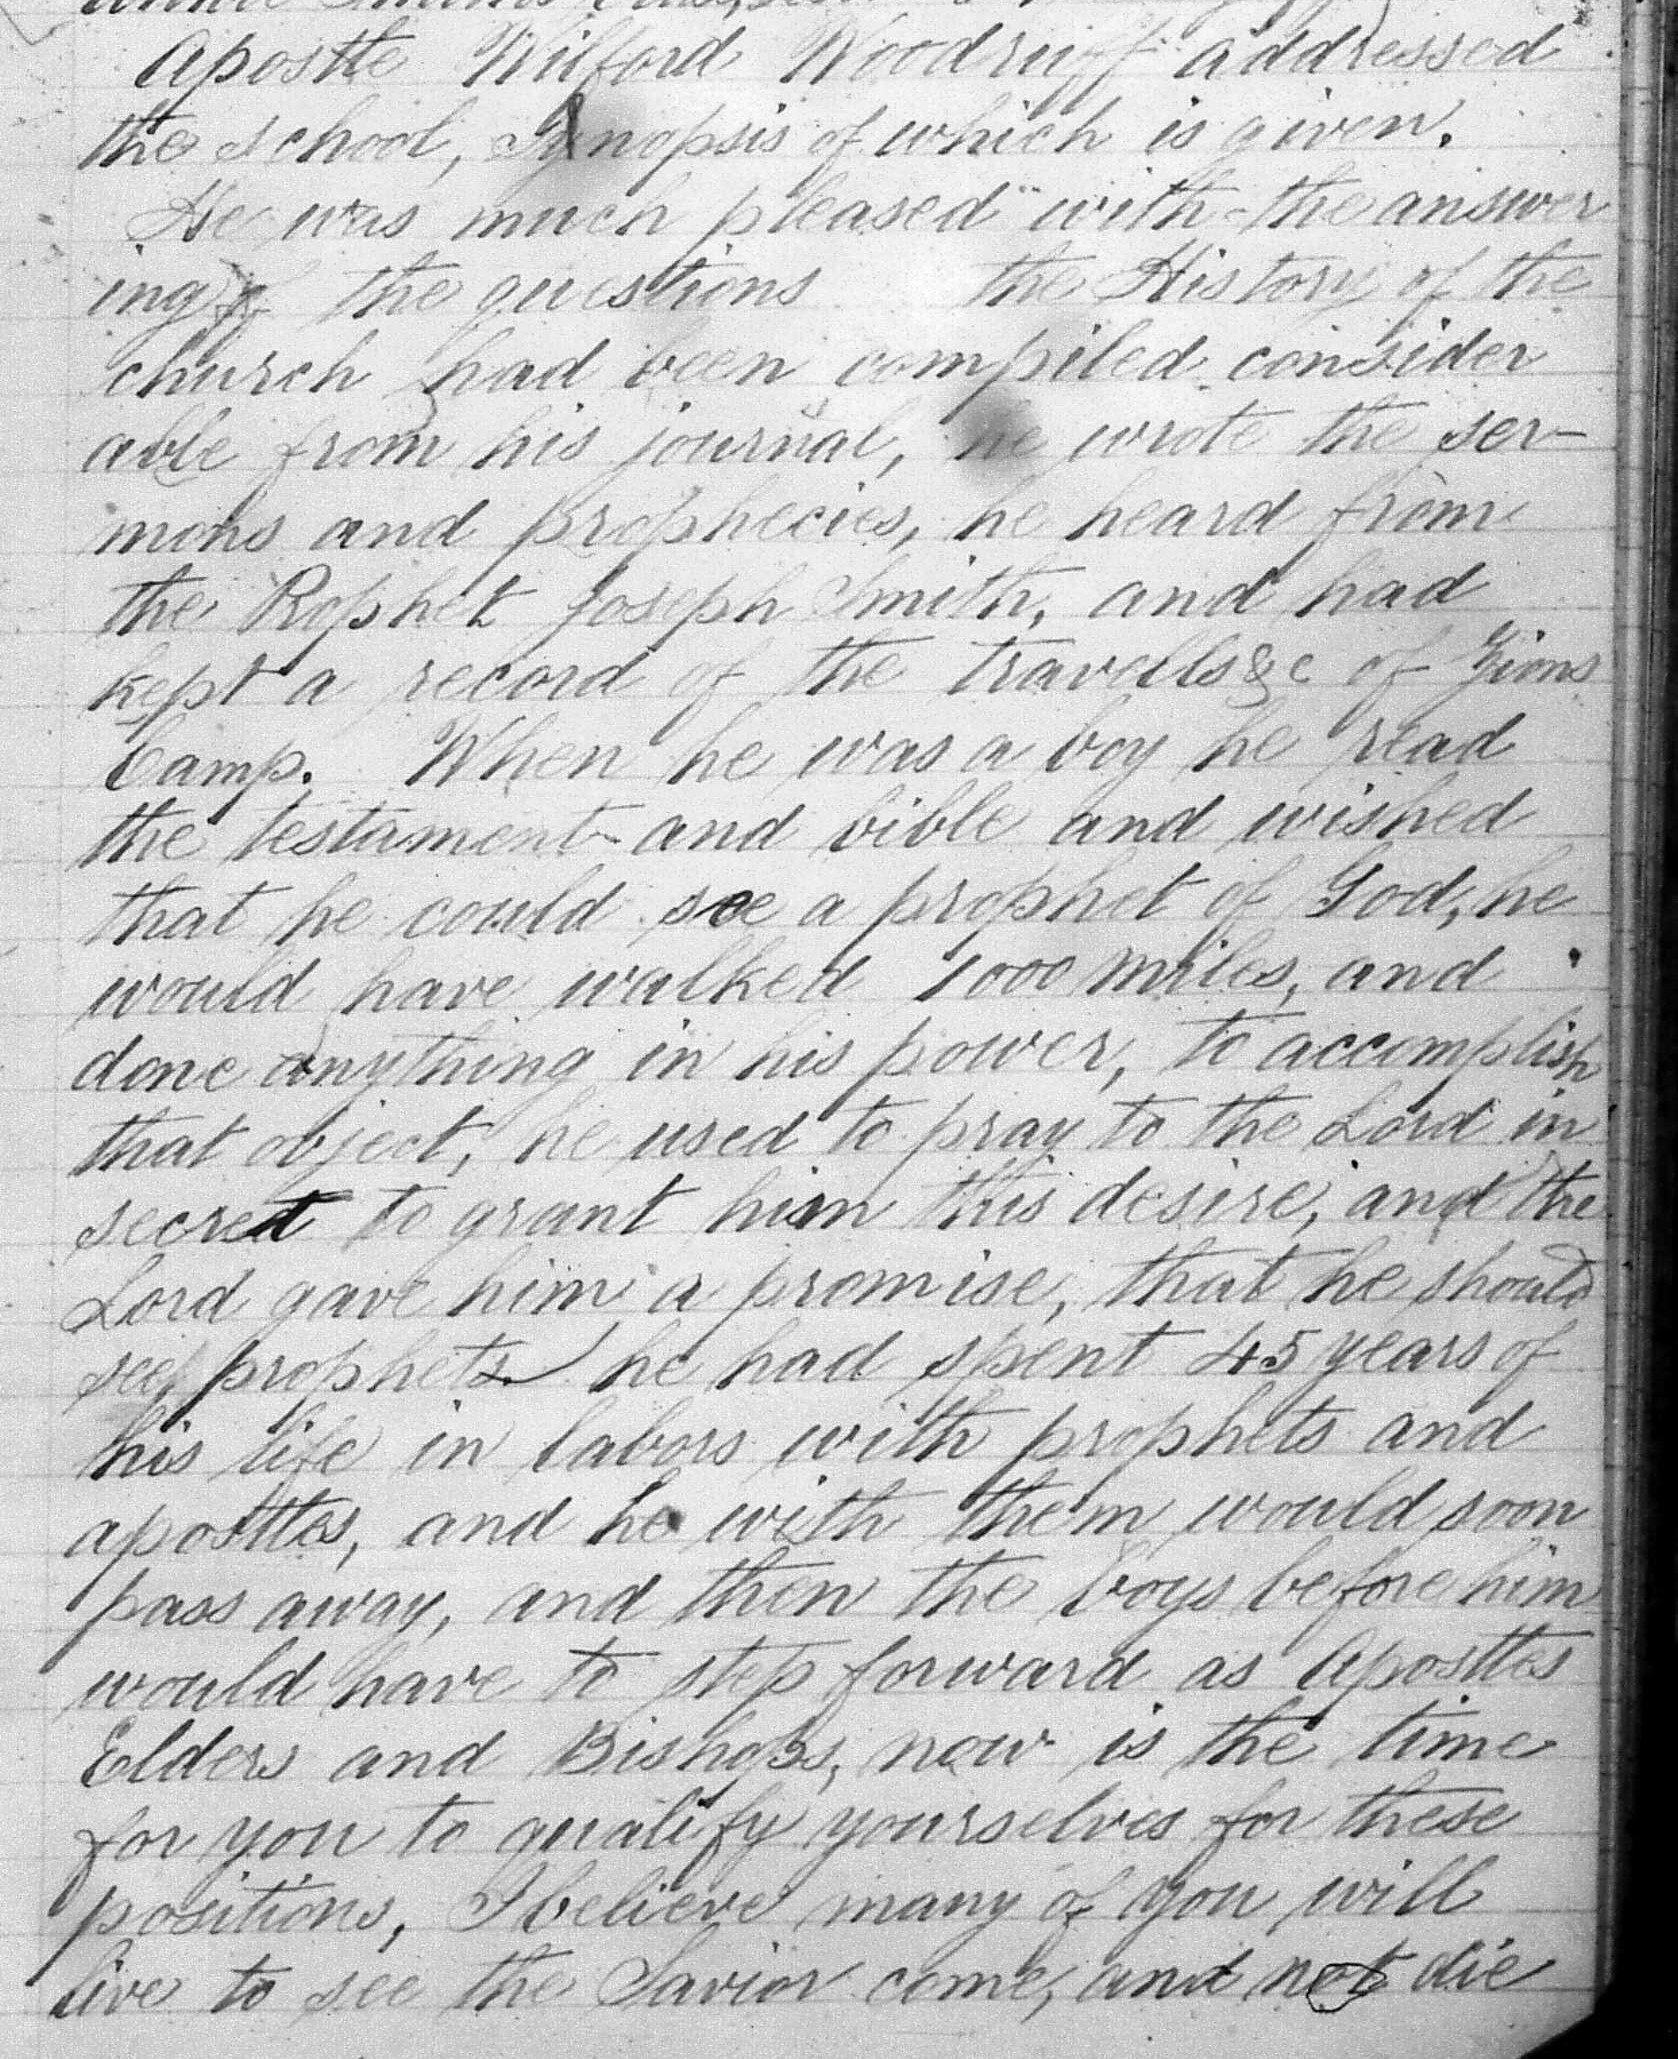 Apostle Wilford Woodruff addressed
the school, Synopsis of which is given.
He was much pleased with the answer
ing of the questions the History of the
church had been compiled consider
able from his journal, he wrote the ser-
mons and prophecies, he heard from
the Prophet Joseph Smith, and had
kept a record of the travells &c of Zions
Camp. When he was a boy he read
the testament and bible and wished
that he could see a prophet of God, he
would have walked 1000 miles, and
done anything in his power, to accomplish
that object, he used to pray to the Lord in
secret to grant him this desire, and the
Lord gave him a promise, that he should
see prophets. he had spent 45 years of
his life in labors with prophets and
apostles, and he with them would soon
pass away, and then the boys before him
would have to step forward as Apostles
Elders and Bishops, now is the time
for you to qualify yourselves for these
positions, I believe many of you will
live to see the Savior come, and not die